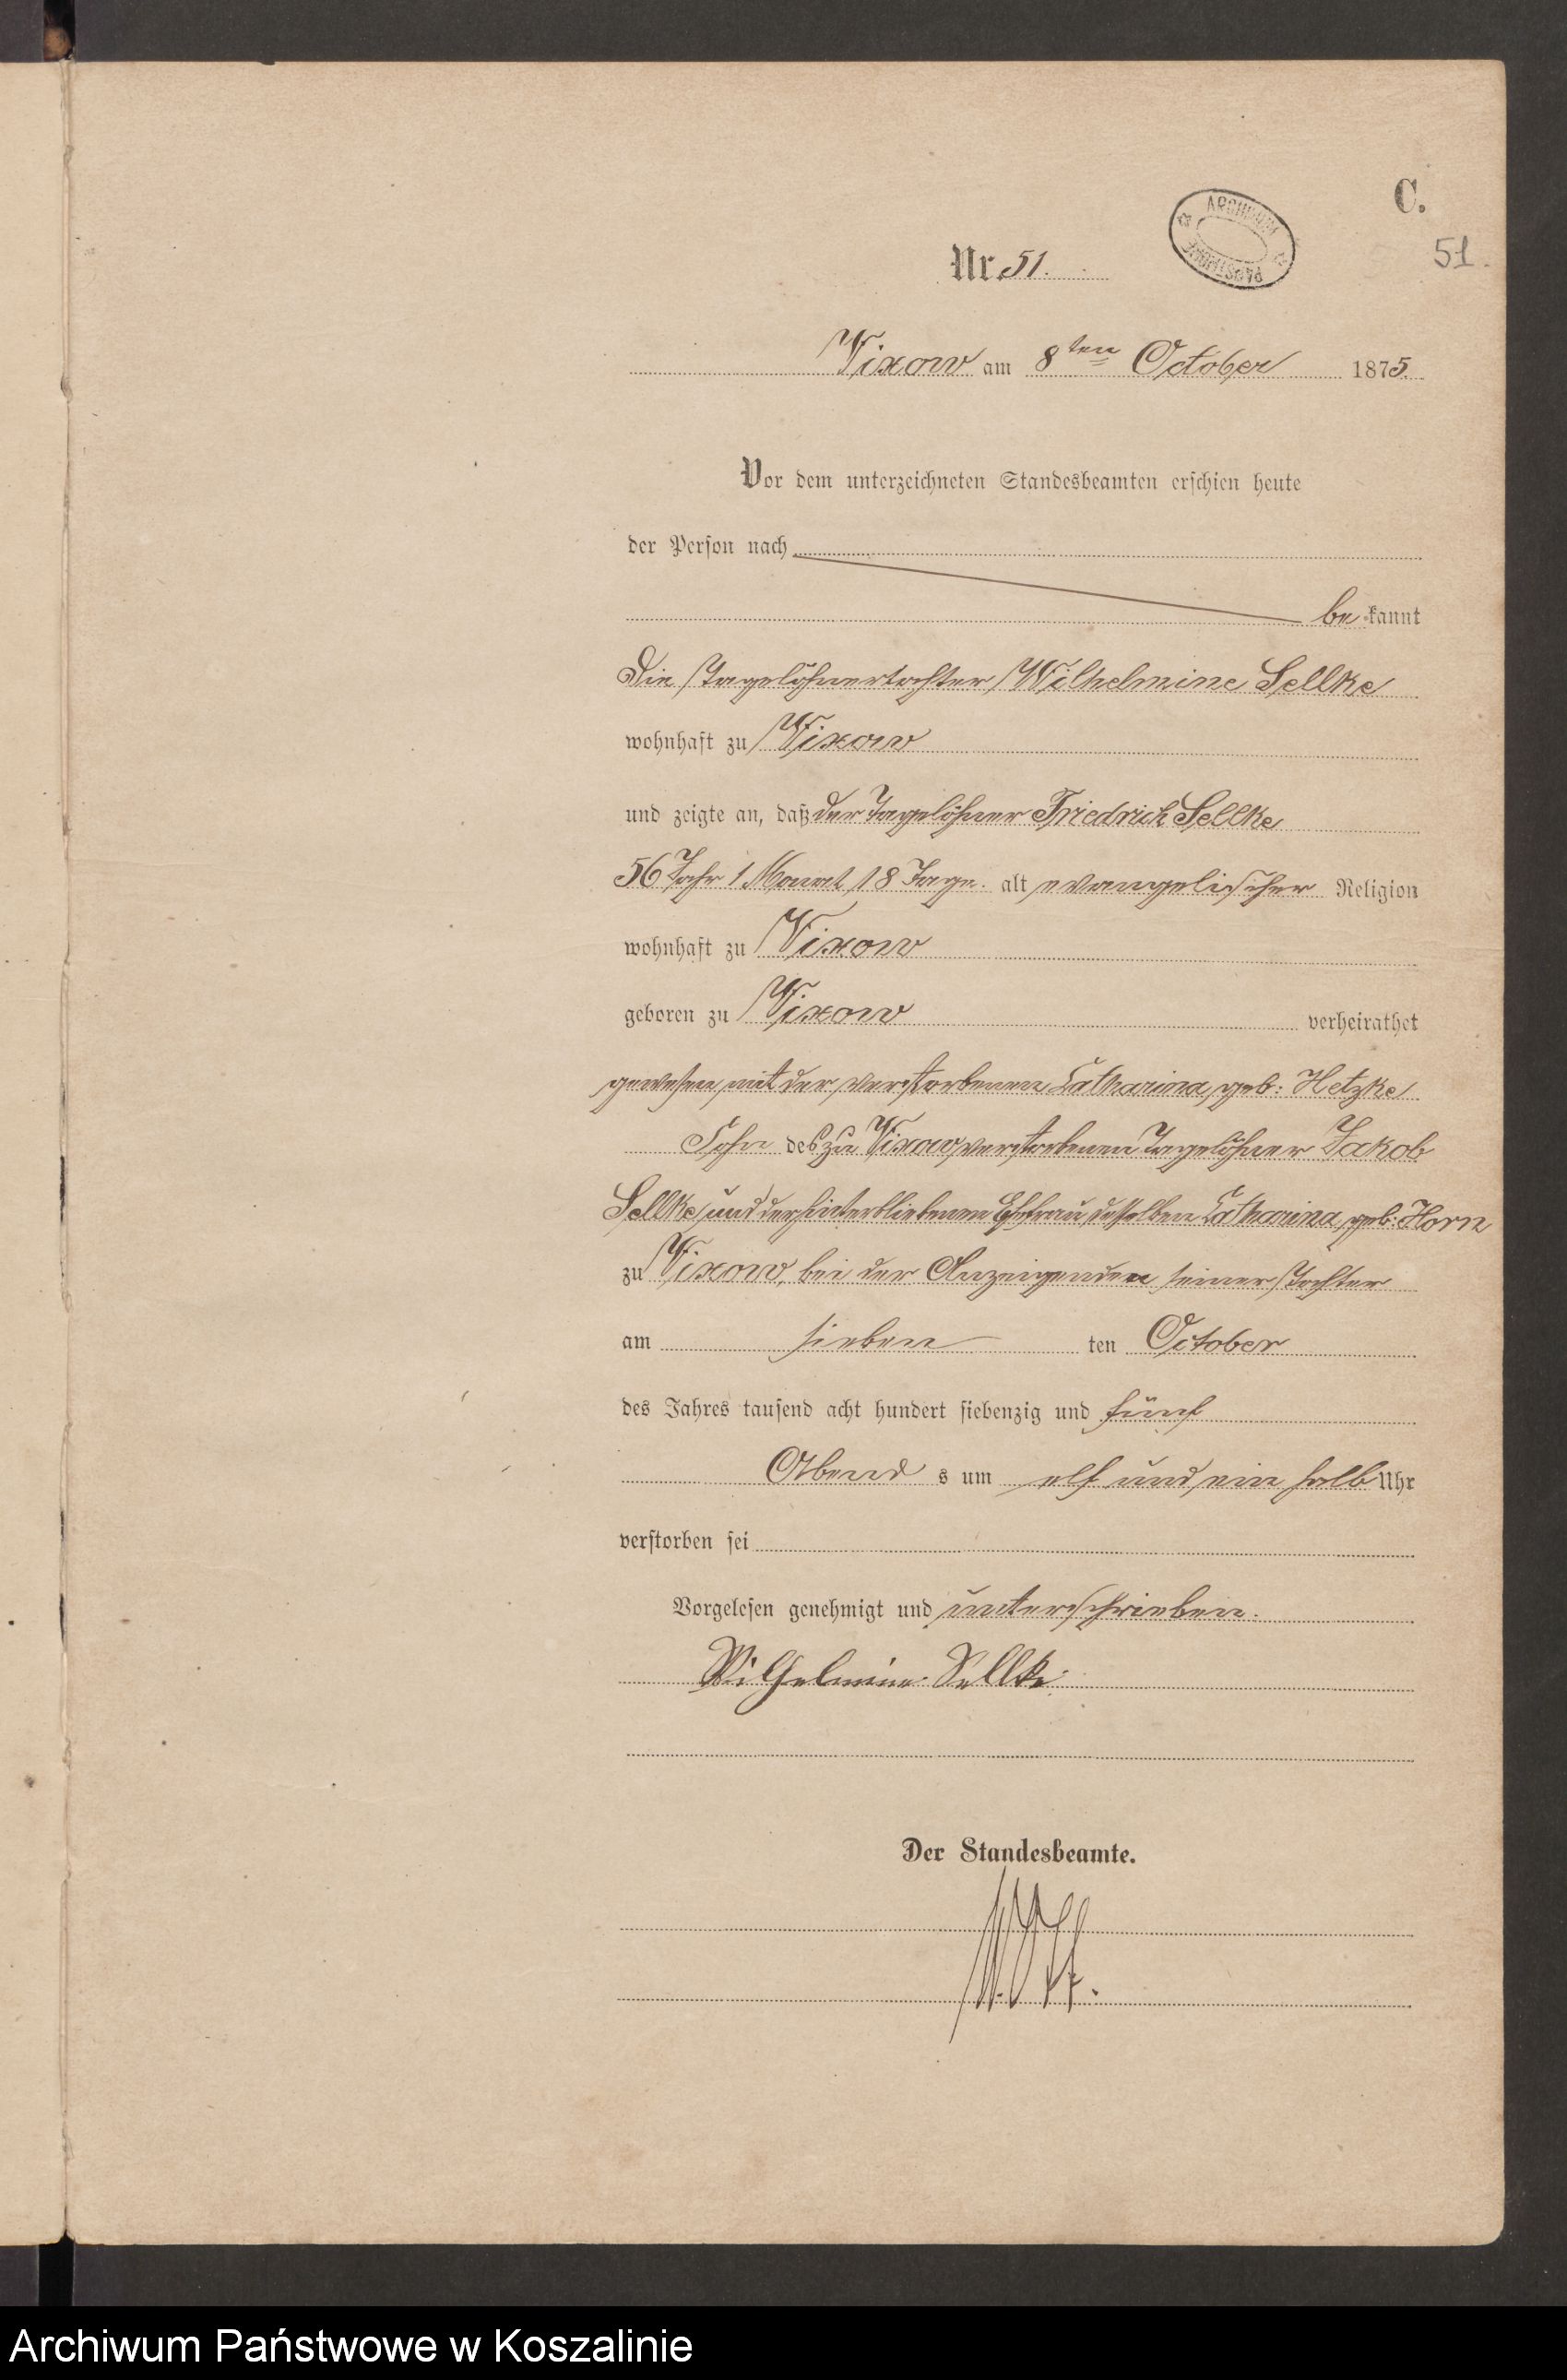 C.
ARCHIWUM
51.
Nr 51.
Vixow am 8ten October 1875.
Vor dem unterzeichneten Standesbeamten erschien heute
der Person nach
be kannt
die Tagelöhnertochter Wilhelmine Sellke
wohnhaft zu Vixow
und zeigte an, daß der Tagelöhner Friedrich Sellke
56 Jahr 1 Monat 18 Tage. alt evangelischer Religion
wohnhaft zu Vixow
geboren zu Vixow verheirathet
gewesen mit der verstorbenen Catharina, geb: Hetzke
Sohn des zu Vixow verstorbenen Tagelöhner Jakob
Sellke und der hinterbliebenen Ehefrau desselben Catharina, geb: Horn
zu Vixow, bei der Anzeigenden seiner Tochter
am sieben ten October
des Jahres tausend acht hundert siebenzig und fünf
Abend s um elf und ein halb Uhr
verstorben sei
Vorgelesen genehmigt und unterschrieben.
Wilhelmine Sellke
Der Standesbeamte.
Archiwum Państwowe w Koszalinie